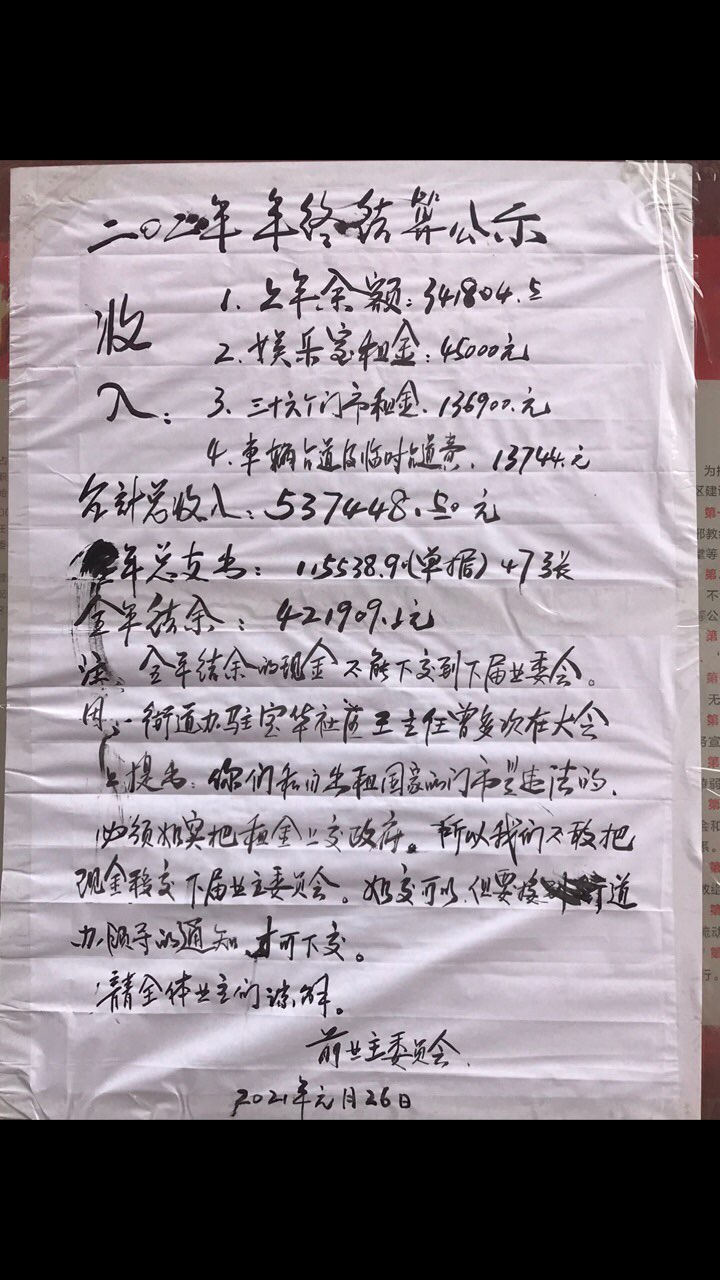 二〇二〇年年终结算公示
收
入:
1. 上年余额:341804.5
2. 娱乐室租金:45000元
3、三十六个门市租金、136900.元
4. 車辆占道及临时占道费、13744.元
合計总收入:537448.50元
年总支出:115538.9(单据)47张
全年结余:421909.6元
注 全年结余的现金不能下交到下届业委会。
因:一街道办驻宝华社区王主任曾多次在大会
上提出:你们私自出租国家的门市是违法的,
必须如实把租金上交政府。所以我们不敢把
现金移交下届业主委员会。如交可以,但要接街道
办领导的通知,才可下交。
请全体业主们谅解。
前业主委员会.
2021年元月26日